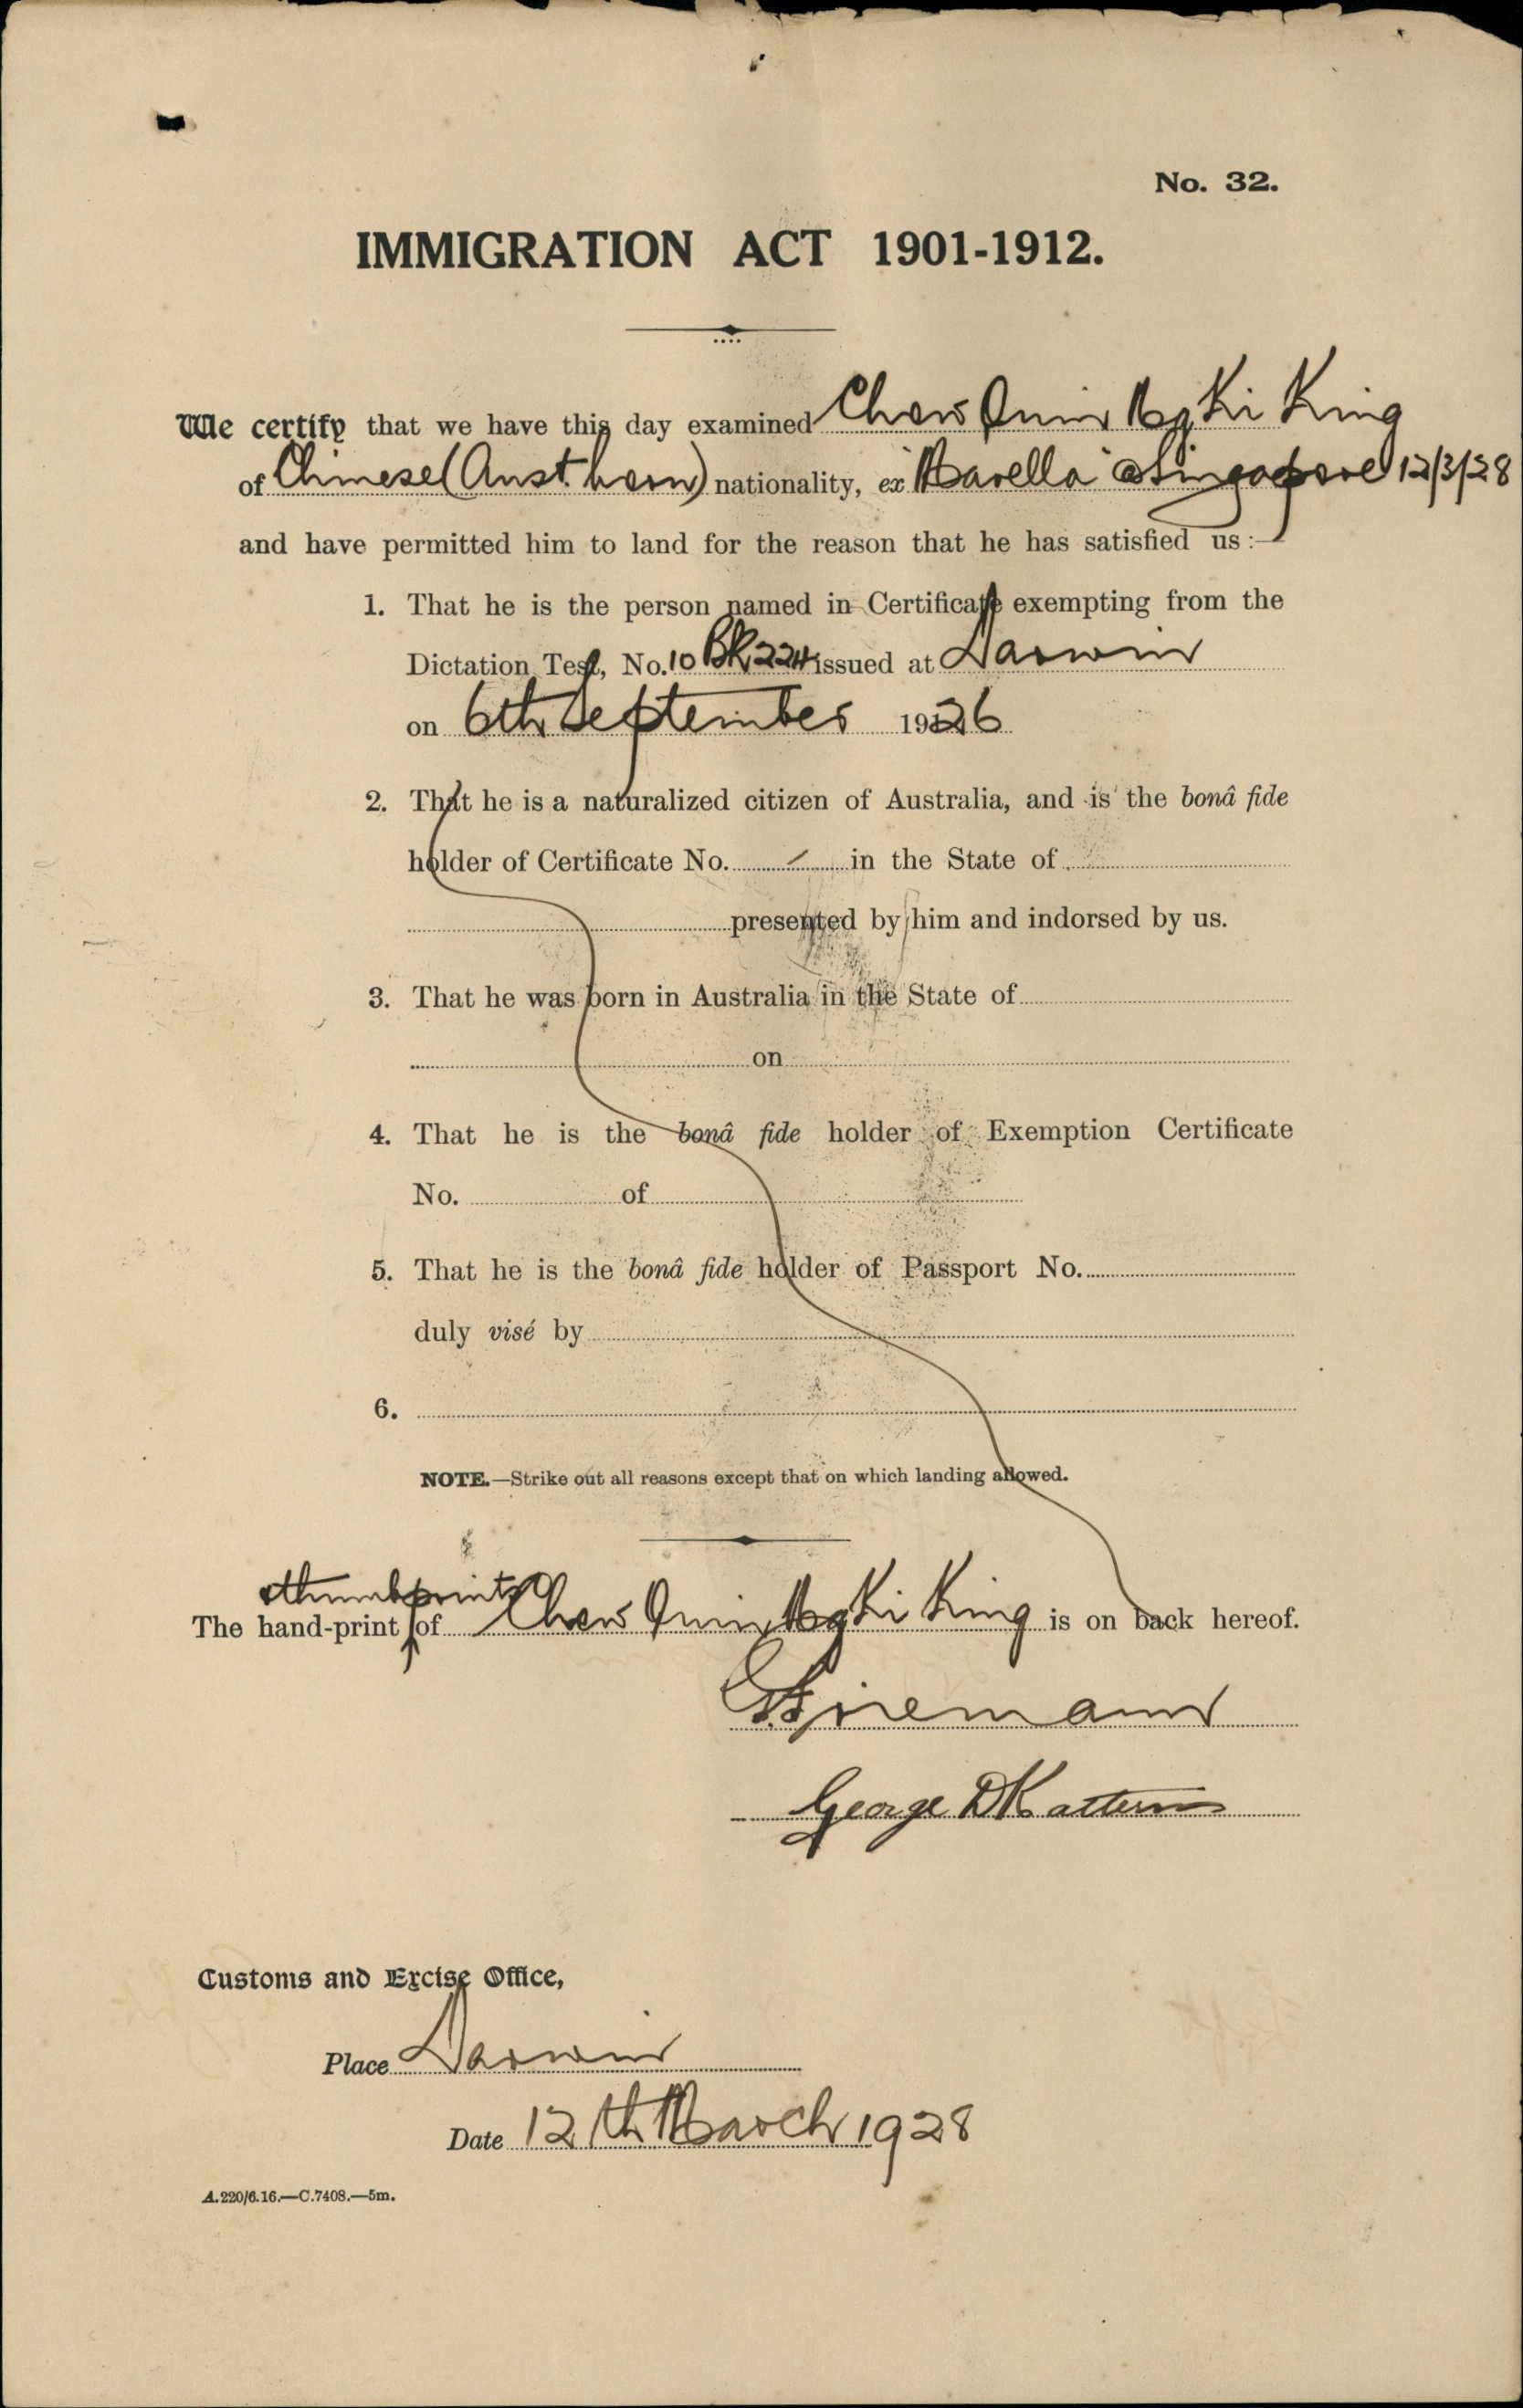 No. 32.
IMMIGRATION ACT 1901-1912.
We certify that we have this day examined Chow Quin Ng Ki King
of Chinese (Aust. born) nationality, ex "Marella" Singapore 12/3/28
and have permitted him to land for the reason that he has satisfied us:—
1. That he is the person named in Certificate exempting from the
Dictation Test, No. 10 BK 224 issued at Darwin
on 6th September 1926
2. That he is a naturalized citizen of Australia, and is the bonâ fide
holder of Certificate No. in the State of
presented by him and indorsed by us.
3. That he was born in Australia in the State of
on
4. That he is the bonâ fide holder of Exemption Certificate
No. of
5. That he is the bonâ fide holder of Passport No.
duly visé by
6.
NOTE.—Strike out all reasons except that on which landing allowed.
thumbprints
The hand-print of Chow Quin Ng Ki King is on back hereof.
George D
Customs and Excise Office,
Place Darwin
Date 12th March 1928
A.220/6.16.—C.7408.—5m.